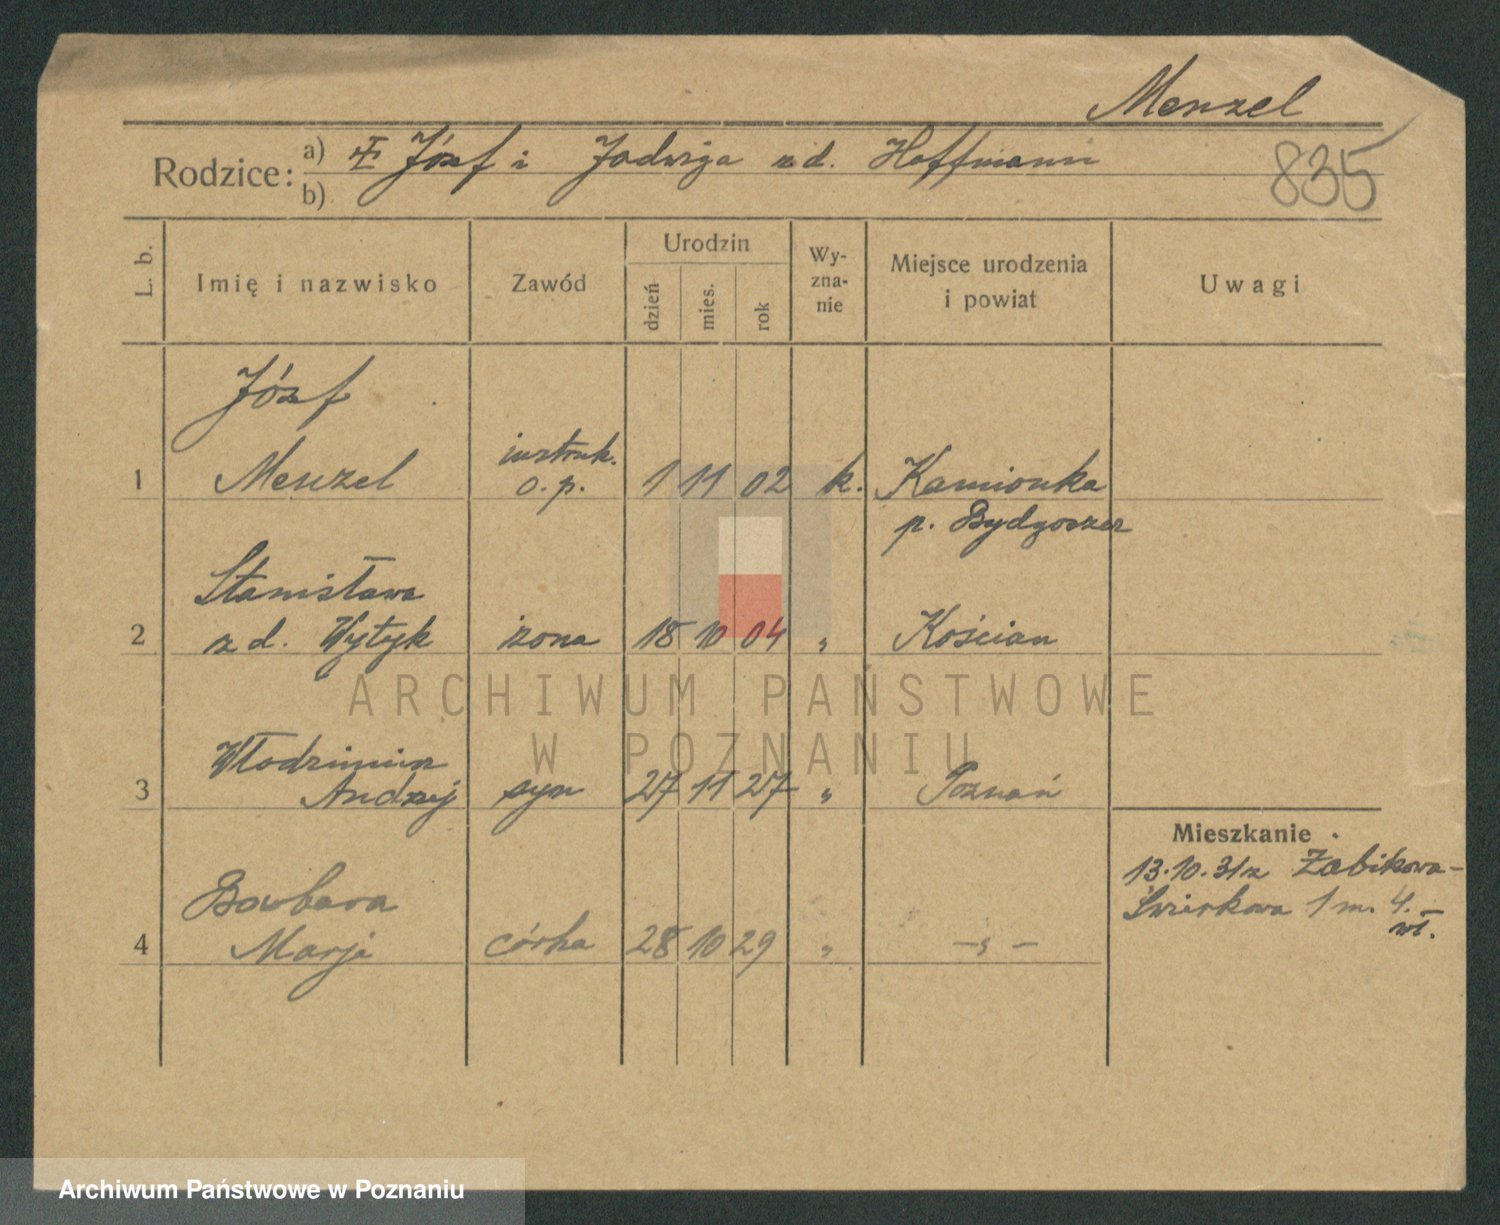 Menzel
Rodzice: a) Józef i Jadwiga z d. Hoffmann
b)
835
L. b.
Imię i nazwisko
Zawód
Urodzin
dzień
mies.
rok
Wy-
zna-
nie
Miejsce urodzenia
i powiat
Uwagi
Józef
1 Menzel instruk. o. p. 1 11 02 k. Kamionka
p. Bydgoszcz
Stanisława
2 z d. Wytyk żona 18 10 04 " Kościan
Włodzimierz
3 Andrzej syn 27 11 27 " Poznań
Barbara
4 Marja córka 28 10 29 " — " —
Mieszkanie
13.10.31 z Żabikowa –
Świerkowa 1 m. 4. –
wł.
ARCHIWUM PAŃSTWOWE
W POZNANIU
Archiwum Państwowe w Poznaniu